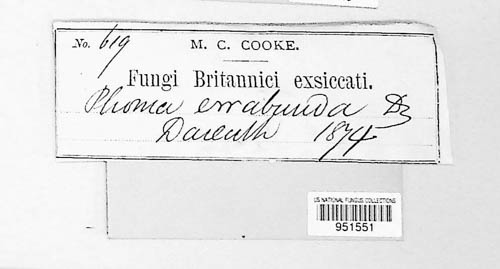 No. 619 M. C. COOKE.
Fungi Britannici exsiccati.
Phoma errabunda Dz
Darenth 1874
US NATIONAL FUNGUS COLLECTIONS
951551